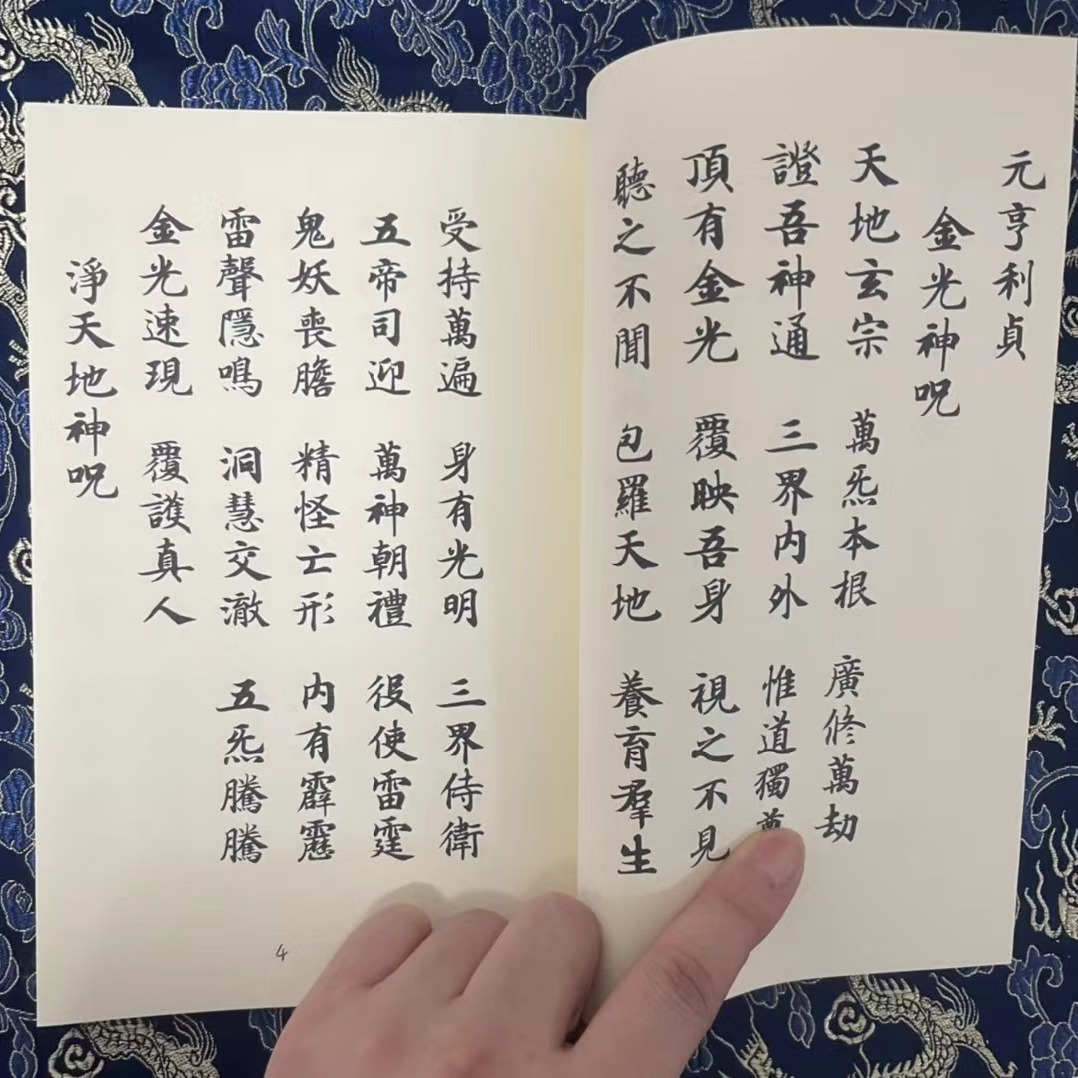 元亨利貞
金光神呪
天地玄宗 萬炁本根 廣修萬劫
證吾神通 三界内外 惟道獨尊
頂有金光 覆映吾身 視之不見
聽之不聞 包羅天地 養育羣生
受持萬遍 身有光明 三界侍衛
五帝司迎 萬神朝禮 役使雷霆
鬼妖喪膽 精怪亡形 内有霹靂
雷聲隱鳴 洞慧交澈 五炁騰騰
金光速現 覆護真人
淨天地神呪
4